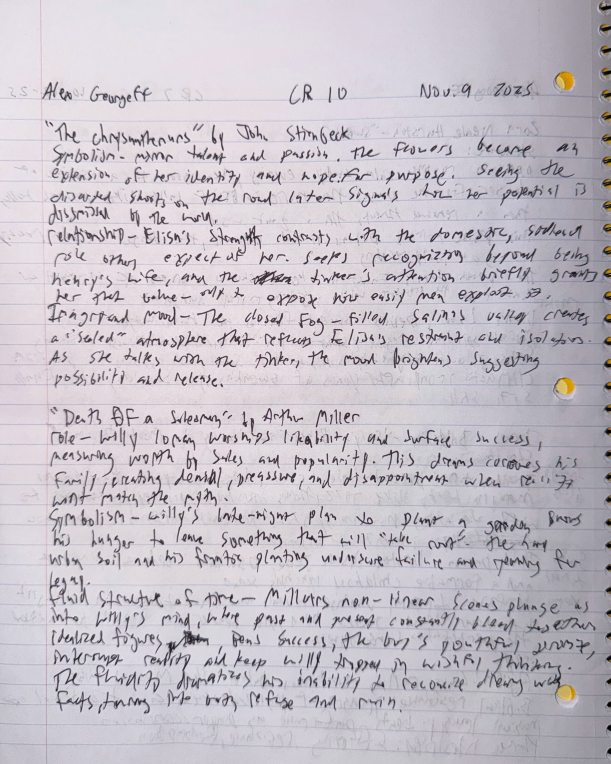 Alex Georgeff CR 10 Nov. 9 2025
"The chrysanthemums" by John Stinbeck
Symbolism - mirror talent and passion. The flowers become an
extension of her identity and hope for purpose. Seeing the
discarted shoots on the road later signals how her potential is
dissmised by the world.
relationship - Elisa's strength contrasts with the domestic, subdued
role others expect of her. seeks recognition beyond being
henry's wife, and the tinker's attention briefly grants
her that value - only to expose how easily men exploit it.
Imagry and mood - The closed fog-filled Salinas valley creates
a "sealed" atmosphere that reflects Elisa's restraint and isolation.
As she talks with the tinker, the mood brightens suggesting
possibility and release.
"Death Of a Salesman" by Arthur Miller
role - willy loman worships likability and surface success,
measuring worth by sales and popularity. This dream corrodes his
family, creating denial, preassure, and disappointment when reality
wont match the myth.
Symbolism - willy's late-night plan to plant a garden shows
his hunger to leave something that will "take root". The hard
urban soil and his frantic planting underscore failure and yearning for
legacy.
fluid structure of time - Millers non-linear scenes plunge us
into willy's mind, where past and present constantly bleed together
idealized figures, Bens success, the boy's youthful promise,
interrupt reality and keep willy trapped in wishful thinking.
The fluidity dramatizes his inability to reconcile dreams with
facts, turning into refuse and ruin.